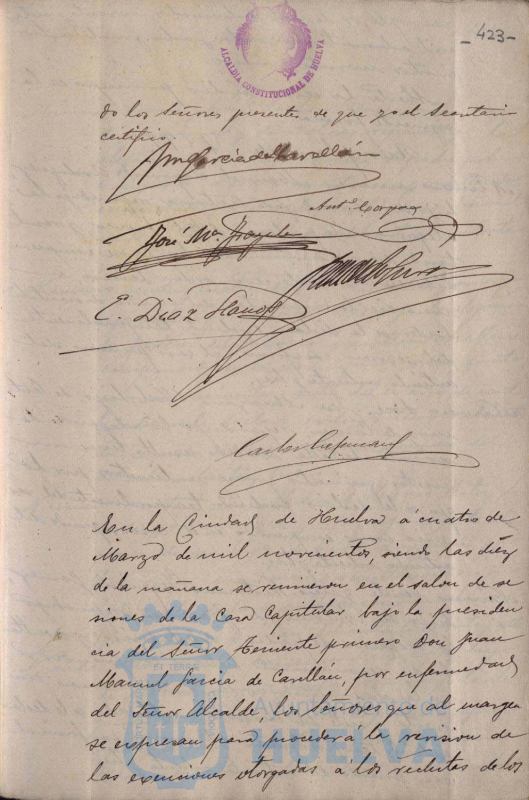 -423-
ALCALDIA CONSTITUCIONAL DE HUELVA
do los Señores presentes de que yo el Secretario
certifico.
Jn. García de Cavallán
Ant.º Corpas
José Mª
E. Diaz
Carlos
En la Ciudad de Huelva á cuatro de
Marzo de mil novecientos, siendo las diez
de la mañana se reunieron en el salon de se
siones de la Casa Capitular bajo la presiden
cia del Señor Teniente primero Don Juan
Manuel Garcia de Cavillán, por enfermedad
del Señor Alcalde, los Señores que al margen
se expresan para proceder á la revision de
las exenciones otorgadas á los reclutas de los
AYUNTAMIENTO DE
HUELVA